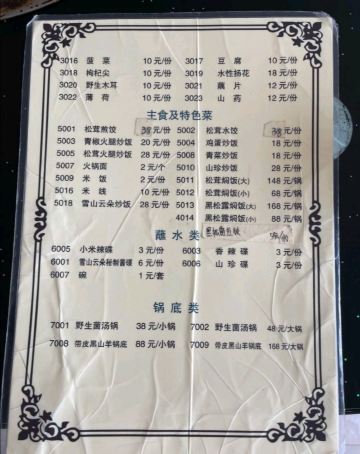 3016 菠菜 10元/份 3017 豆腐 10元/份
3018 枸杞尖 10元/份 3019 水性扬花 18元/份
3020 野生木耳 10元/份 3021 藕片 12元/份
3022 薄荷 10元/份 3023 山药 12元/份
主食及特色菜
5001 松茸煎饺 元/份 5002 松茸水饺 元/份
5003 青椒火腿炒饭 20元/份 5004 鸡蛋炒饭 18元/份
5005 松茸火腿炒饭 28元/份 5008 青菜炒饭 18元/份
5007 火锅面 2元/个 5010 山珍炒饭 28元/份
5009 米饭 2元/份 5011 松茸焖饭(大) 148元/锅
5016 米线 10元/份 5012 松茸焖饭(小) 68元/锅
5018 雪山云朵炒饭 28元/份 5013 黑松露焖饭(大) 168元/锅
4014 黑松露焖饭(小) 88元/锅
蘸水类
6005 小米辣碟 3元/份 6003 香辣碟 3元/份
6001 雪山云朵秘制酱碟 6元/份 6006 山珍碟 3元/份
6007 碗 1元/套
锅底类
7001 野生菌汤锅 38元/小锅 7002 野生菌汤锅 48元/大锅
7008 带皮黑山羊锅底 88元/小锅 7009 带皮黑山羊锅底 168元/大锅